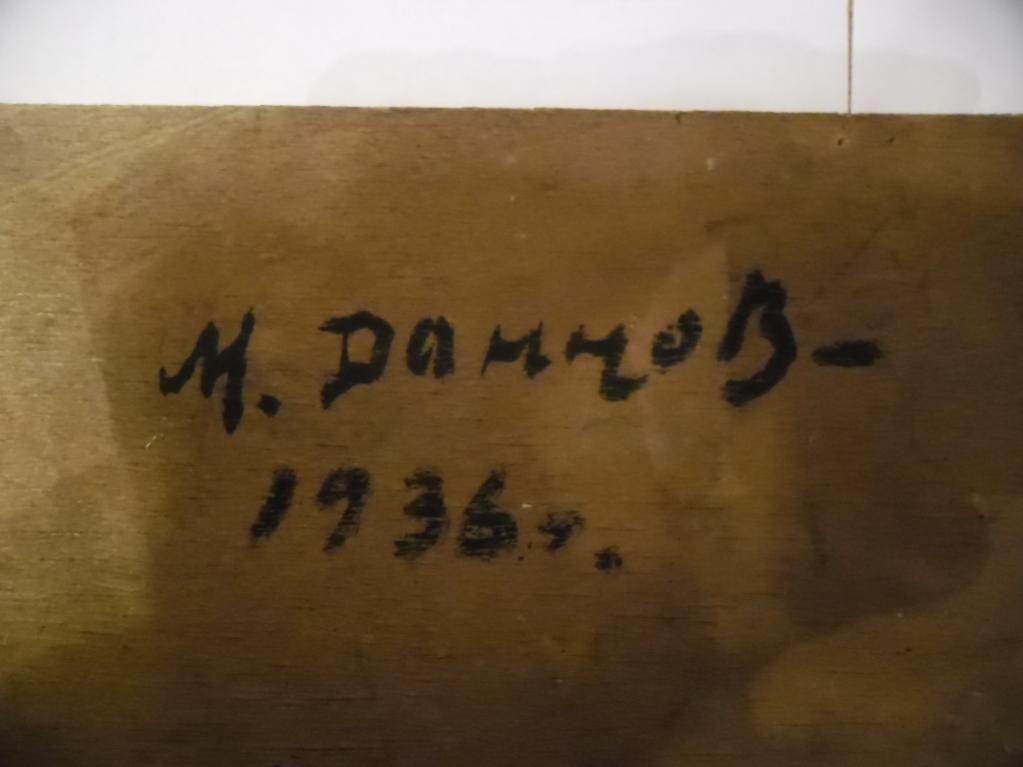 М. Данцов-
1936г.